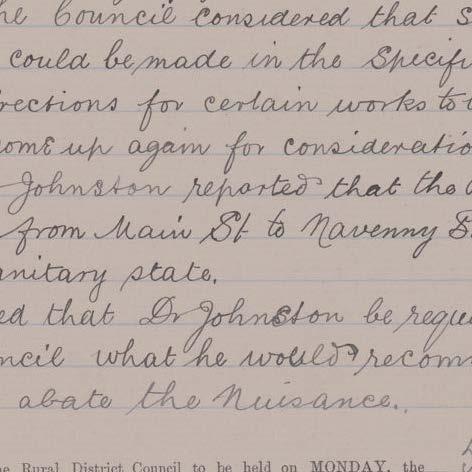 he Council considered that s
could be made in the Specifi
rections for certain works to b
come up again for consideratio
Johnston reported that the
from Main St to Navenny S
anitary state.
ed that Dr Johnston be reque
ncil what he would recom
abate the Nuisance..
he Rural District Council to be held on MONDAY, the